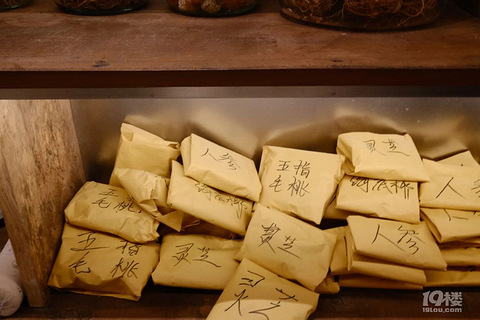 人参
五指
毛桃
灵芝
人
五指
毛桃
灵芝
人参
人
五指
毛桃
灵芝
灵芝
19楼
19lou.com